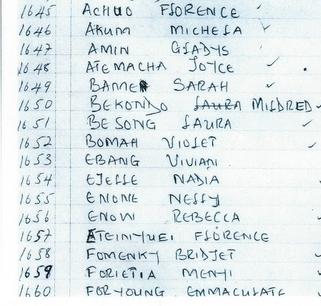 1645 ACHUO FLORENCE ✓
1646 AKUM MICHELA ✓
1647 AMIN GLADYS ✓
1648 ATEMACHA JOYCE ✓
1649 BAMER SARAH ✓
1650 BEKONDO LAURA MILDRED ✓
1651 BESONG LAURA ✓
1652 BOMAH VIOLET ✓
1653 EBANG VIVIAN
1654 EJELLE NADIA
1655 ENONE NELLY
1656 ENOW REBECCA
1657 FLORENCE
1658 FOMENKY BRIDJET
1659 FORIETIA MENYI
1660 FORYOUNG EMMACULATE